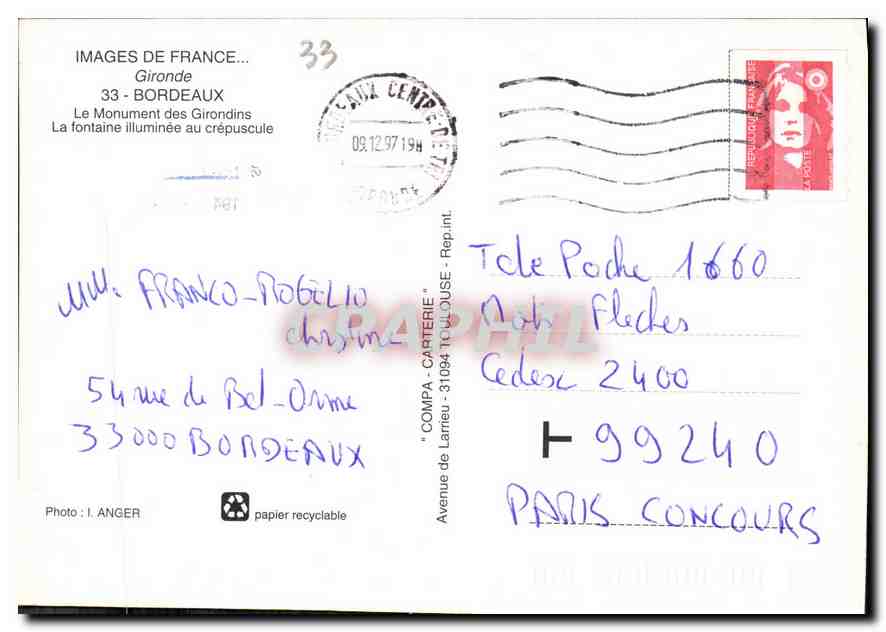 IMAGES DE FRANCE...
Gironde
33 - BORDEAUX
Le Monument des Girondins
La fontaine illuminée au crépuscule
33
BORDEAUX CENTRE
09.12.97 19H
GIRONDE
REPUBLIQUE FRANÇAISE
LA POSTE
MMe FRANCO-ROGELIO
Christine
54 rue de Bel-Orme
33000 BORDEAUX
Photo : I. ANGER
papier recyclable
" COMPA - CARTERIE "
Avenue de Larrieu - 31094 TOULOUSE - Rep.int.
CPAPHIL
Tele Poche 1660
Mots Fleches
Cedex 2400
99240
PARIS CONCOURS